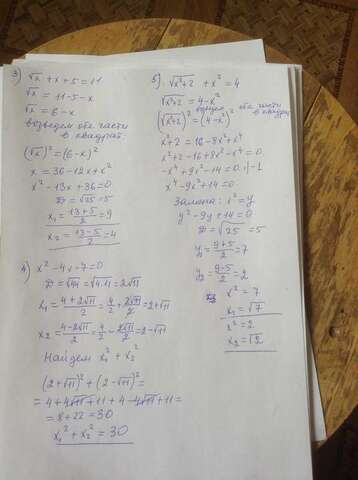 3) √x + x + 5 = 11
√x = 11 - 5 - x
√x = 6 - x
возведем обе части
в квадрат
(√x)² = (6 - x)²
x = 36 - 12x + x²
x² - 13x + 36 = 0
D = √25 = 5
x₁ = (13+5)/2 = 9
x₂ = (13-5)/2 = 4
4) x² - 4x - 7 = 0
D = √44 = √4·11 = 2√11
x₁ = (4+2√11)/2 = 4/2 + 2√11/2 = 2+√11
x₂ = (4-2√11)/2 = 4/2 - 2√11/2 = 2-√11
Найдем x₁² + x₂²
(2+√11)² + (2-√11)² =
= 4 + 4√11 + 11 + 4 - 4√11 + 11 =
= 8 + 22 = 30
x₁² + x₂² = 30
5) √x²+2 + x² = 4
√x²+2 = 4 - x²
возведем обе части
в квадрат
(√x²+2)² = (4-x²)²
x² + 2 = 16 - 8x² + x⁴
x² + 2 - 16 + 8x² - x⁴ = 0
-x⁴ + 9x² - 14 = 0 |·(-1)
x⁴ - 9x² + 14 = 0
Замена: x² = y
y² - 9y + 14 = 0
D = √25 = 5
y₁ = (9+5)/2 = 7
y₂ = (9-5)/2 = 2
x² = 7
x₁ = √7
x² = 2
x₂ = √2